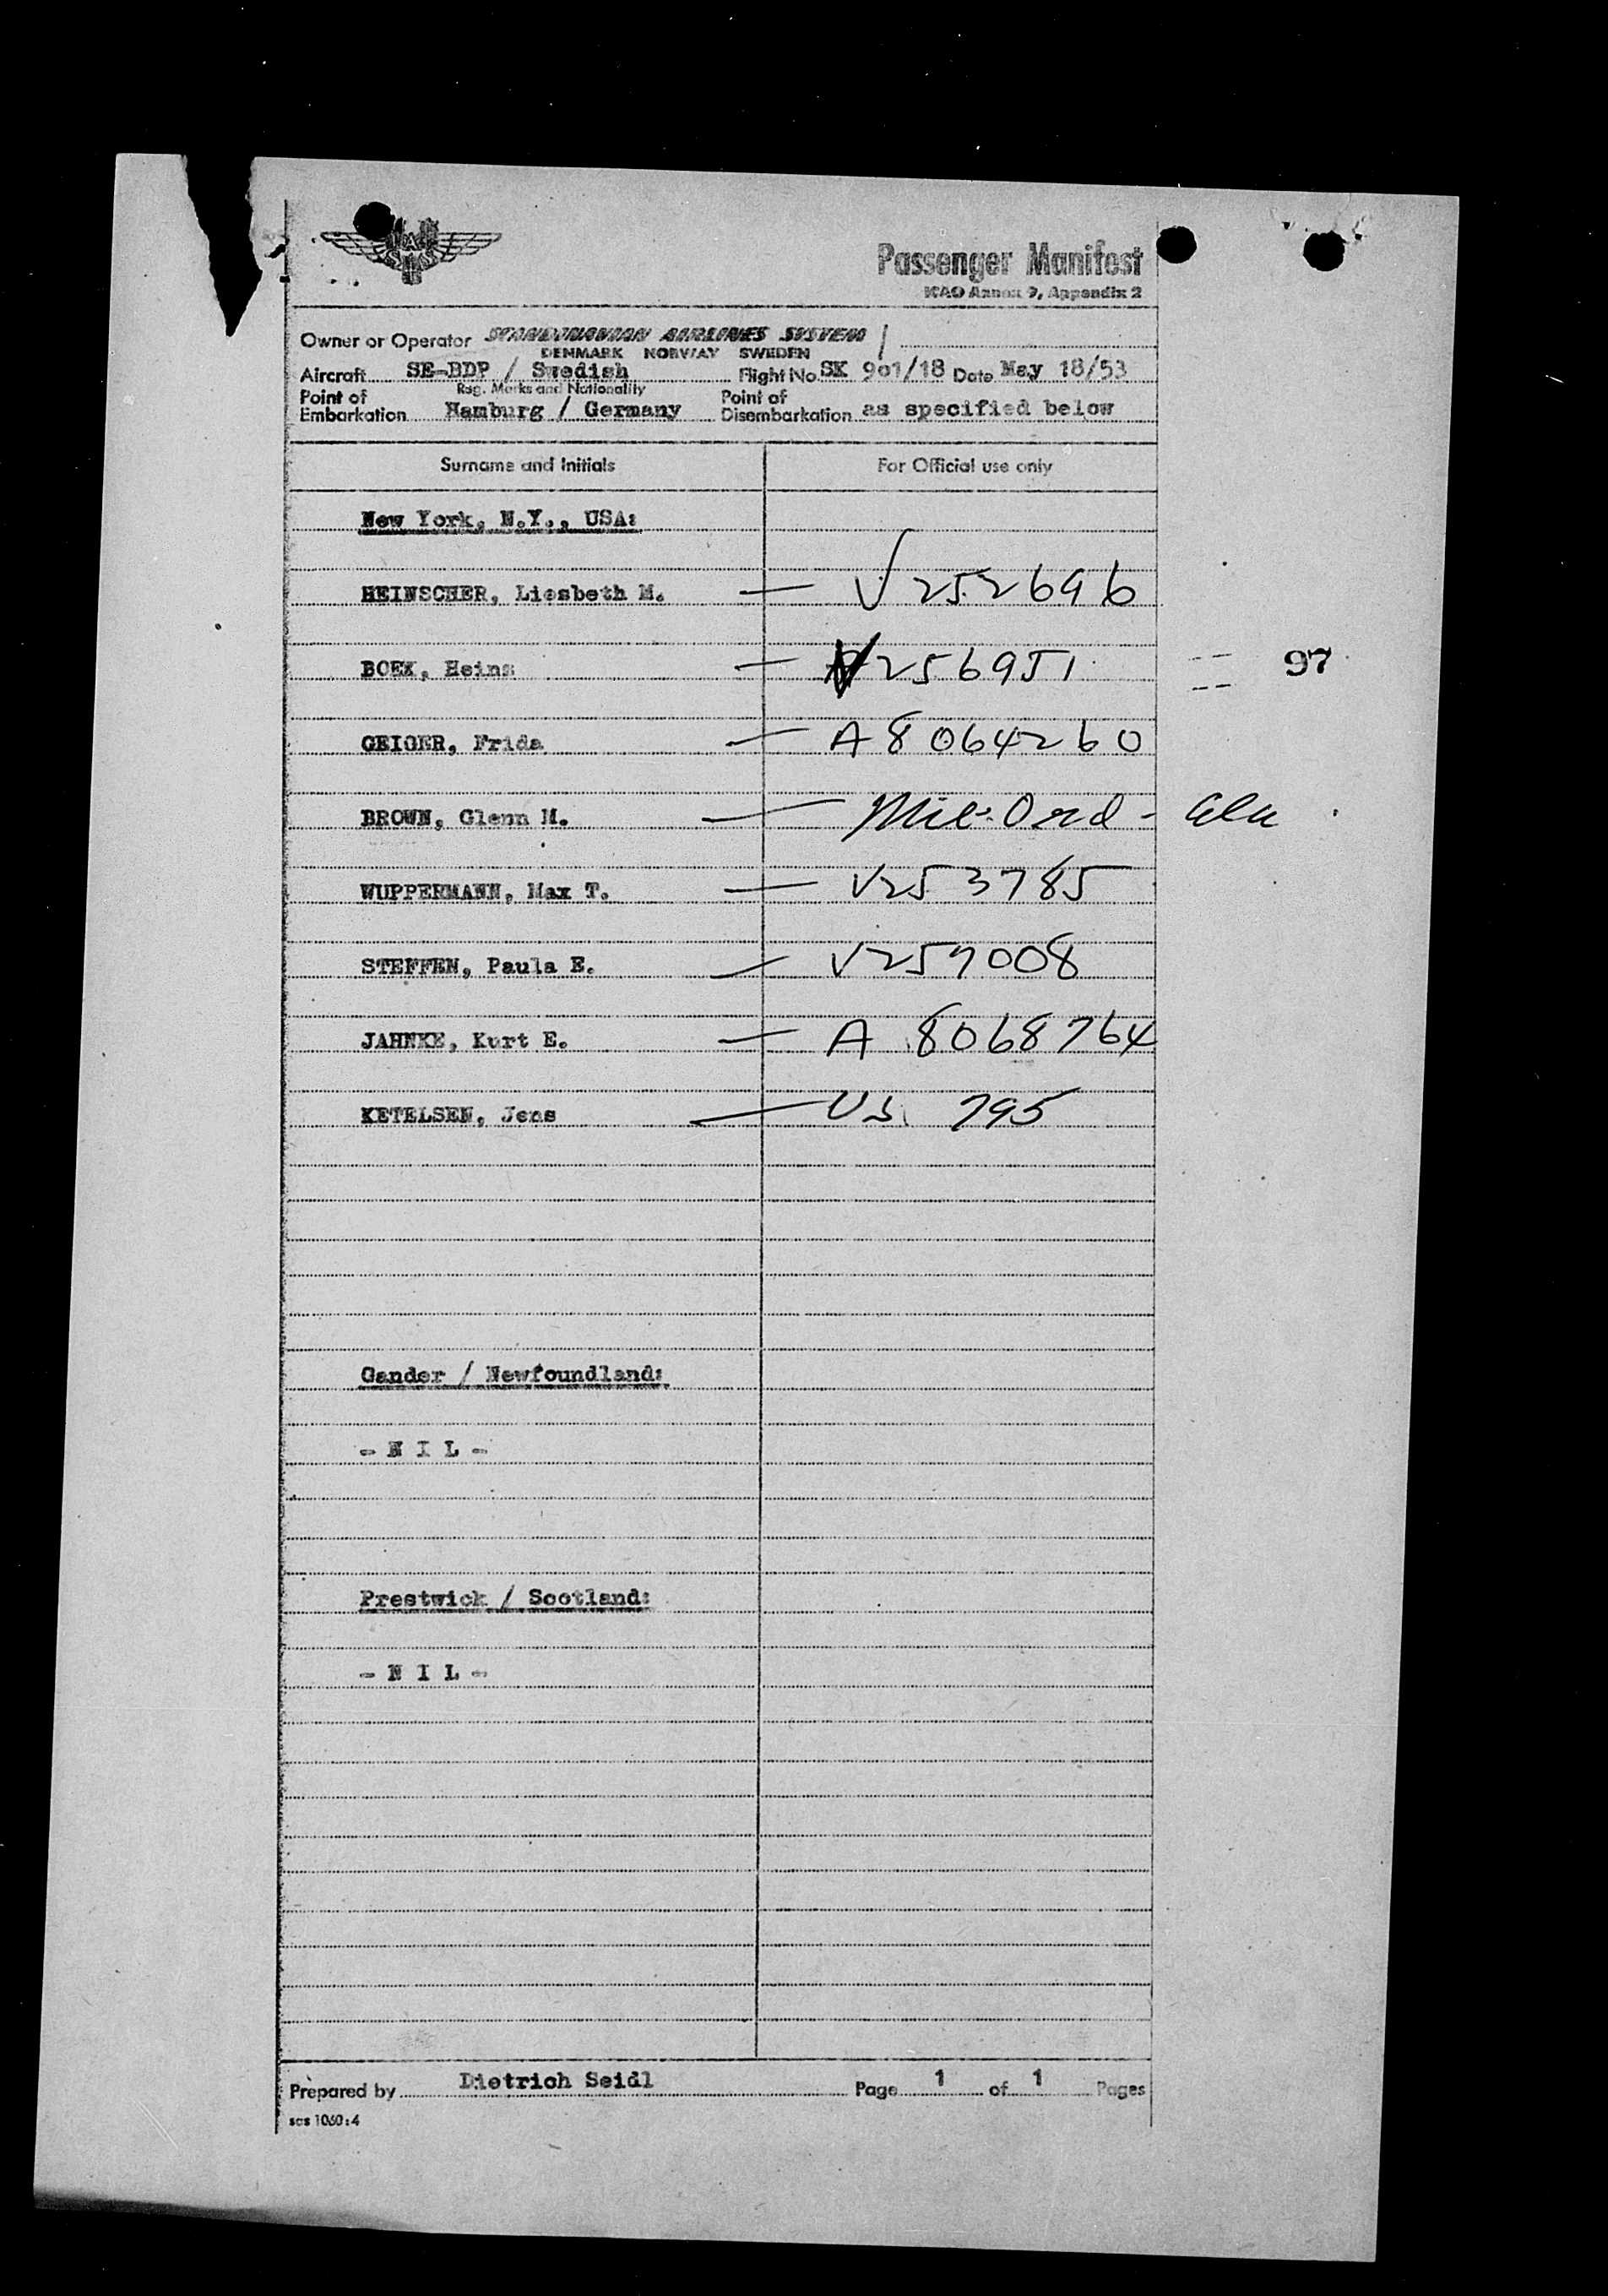 SAS
Passenger Manifest
ICAO Annex 9, Appendix 2
Owner or Operator SCANDINAVIAN AIRLINES SYSTEM /
DENMARK NORWAY SWEDEN
Aircraft SE-BDP / Swedish Flight No. SK 901/18 Date May 18/53
Reg. Marks and Nationality
Point of Embarkation Hamburg / Germany Point of Disembarkation as specified below
Surname and Initials For Official use only
New York, N.Y., USA:
HEINSCHER, Liesbeth M. — V252696
BOEK, Heinz — V256951 97
GEIGER, Frida — A8064260
BROWN, Glenn M. — Mil. Ord -
WUPPERMANN, Max T. — V253785
STEFFEN, Paula E. — V259008
JAHNKE, Kurt E. — A 8068764
KETELSEN, Jens — US. 795
Gander / Newfoundland:
- N I L -
Prestwick / Scotland:
- N I L -
Prepared by Dietrich Seidl Page 1 of 1 Pages
scs 1060:4